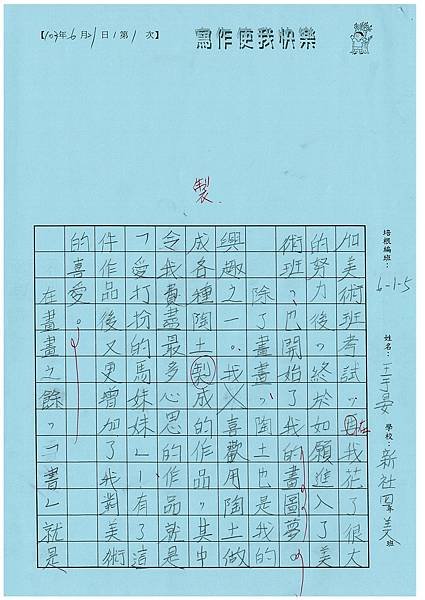 【103年6月21日/第1次】
寫作使我快樂
培根編班：6-1-5 姓名：王于晏 學校：新社 美班
製
加美術班考試，再我花了很大
在
的努力後，終於如願進入了美
術班，已開始了我的畫圖夢。
除了畫畫，陶土也是我的
興趣之一。我又喜歡用陶土做
成各種陶土製成的作品，其中
令我費盡最多心思的作品就是
「愛打扮的馬妹妹」！有了這
件作品後又更增加了我對美術
的喜愛。
在畫畫之餘，「書」就是